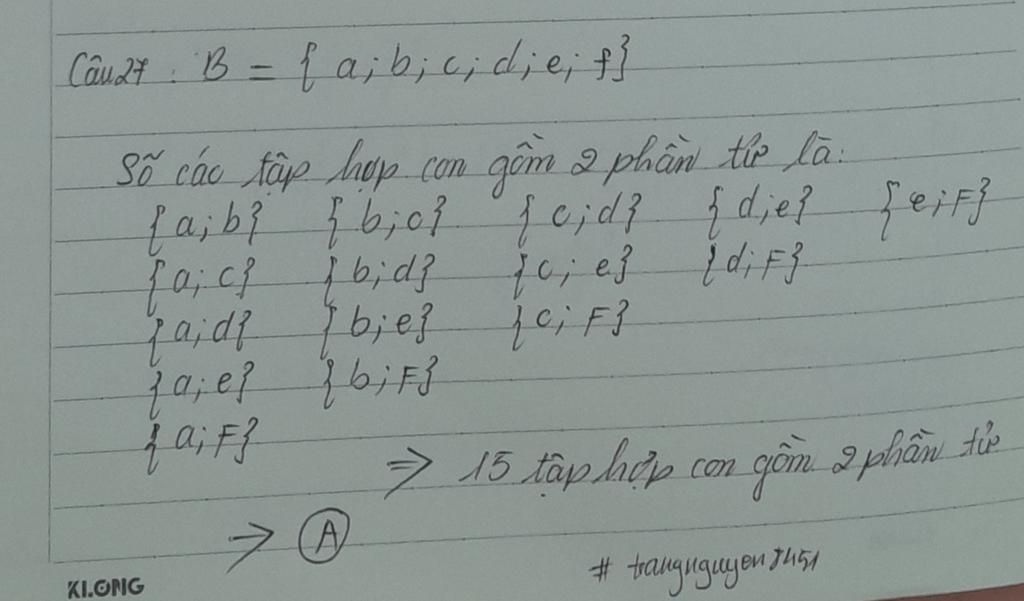 Câu 27 : B = { a; b; c; d; e; f}
Số các tập hợp con gồm 2 phần tử là:
{a; b} { b; c} { c; d} { d; e} { e; F}
{a; c} { b; d} { c; e} { d; F}
{a; d} { b; e} { c; F}
{a; e} { b; F}
{a; F}
⇒ 15 tập hợp con gồm 2 phần tử
→ A
# trangnguyen8451
KLONG